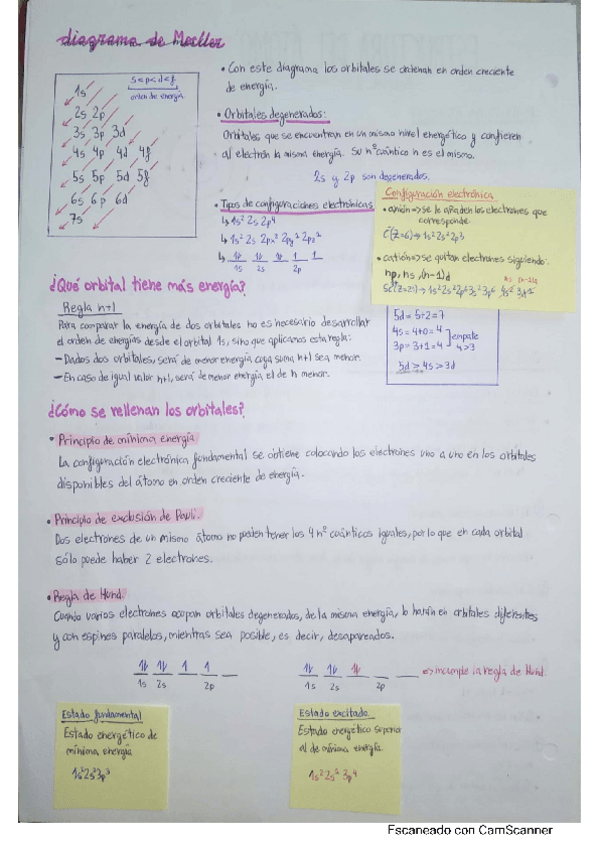 diagrama de Moeller
s<p<d<f
orden de energía
1s
2s 2p
3s 3p 3d
4s 4p 4d 4f
5s 5p 5d 5f
6s 6p 6d
7s
• Con este diagrama los orbitales se ordenan en orden creciente
de energía.
• Orbitales degenerados:
Orbitales que se encuentran en un mismo nivel energético y confieren
al electrón la misma energía. Su nº cuántico n es el mismo.
2s y 2p son degenerados.
• Tipos de configuraciones electrónicas
↳ 1s² 2s 2p⁴
↳ 1s² 2s 2px² 2py² 2pz²
↳ 1s 2s 2p
Configuración electrónica
• anión => se le añaden los electrones que
corresponde
• catión => se quitan electrones siguiendo:
np, ns, (n-1)d
¿Qué orbital tiene más energía?
Regla n+l
Para comparar la energía de dos orbitales no es necesario desarrollar
el orden de energías desde el orbital 1s, sino que aplicamos esta regla:
– Dados dos orbitales, será de menor energía cuya suma n+l sea menor.
– En caso de igual valor n+l, será de menor energía el de n menor.
5d = 5+2 = 7
4s = 4+0 = 4
3p = 3+1 = 4
empate
4>3
5d > 4s > 3d
¿Cómo se rellenan los orbitales?
• Principio de mínima energía
La configuración electrónica fundamental se obtiene colocando los electrones uno a uno en los orbitales
disponibles del átomo en orden creciente de energía.
• Principio de exclusión de Pauli.
Dos electrones de un mismo átomo no pueden tener los 4 nº cuánticos iguales, por lo que en cada orbital
sólo puede haber 2 electrones.
• Regla de Hund.
Cuando varios electrones ocupan orbitales degenerados, de la misma energía, lo harán en orbitales diferentes
y con espines paralelos, mientras sea posible, es decir, desapareados.
⥮ ⥮ 1 1 _
1s 2s 2p
⥮ ⥮ ⥮ _ _ => incumple la regla de Hund
1s 2s 2p
Estado fundamental
Estado energético de
mínima energía
1s²2s²3p³
Estado excitado
Estado energético superior
al de mínima energía
1s² 2s² 3p⁴
Escaneado con CamScanner